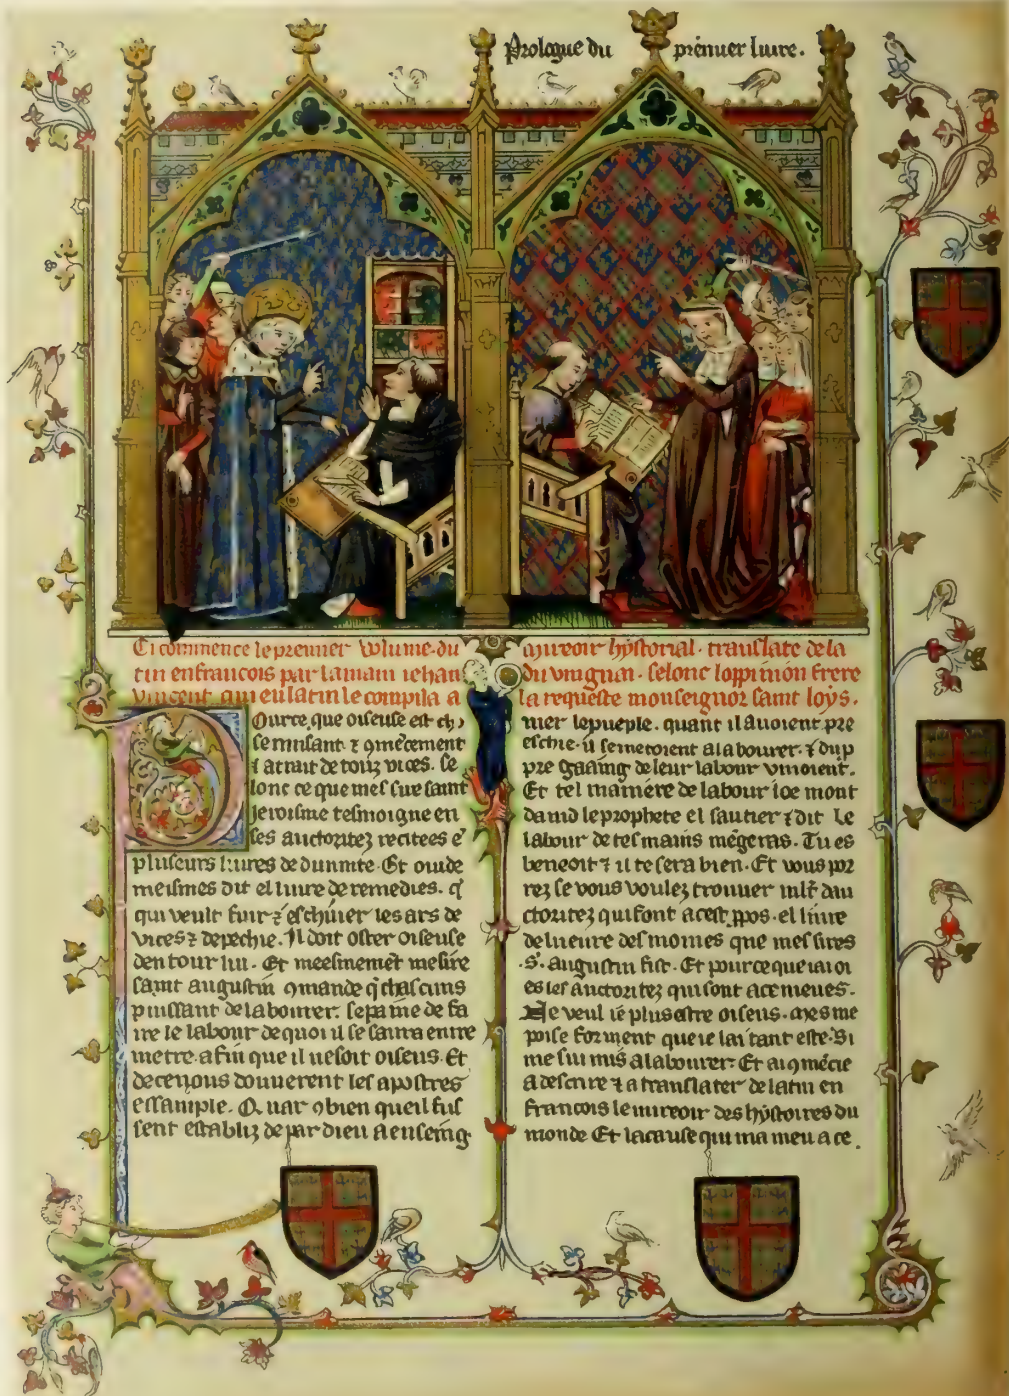 Prologue du premier livre.
Ci commence le premier volume du
mireoir hystorial. translate de la
tin en francois par la main iehan
du vingnai. selonc loppinion frere
vincent qui en latin le compila a
la requeste monseignor saint loys.
Pource que oiseuse est ch
se nuisant ⁊ 9mēcement
⁊ atrait de touz vices. se
lonc ce que mes sire saint
Jeroisme tesmoigne en
ses auctoritez recitees ē
pluseurs liures de diuinite. Et ouide
meismes dit el liure de remedies. q̄
qui veult fuir ⁊ eschiuer les ars de
vices ⁊ de pechie. Il doit oster oiseuse
dentour lui. Et meesmemēt mesire
saint augustin 9mande q̄ chascuns
puissant de labourer. se paine de fa
ire le labour de quoi il se saura entre
metre. a fin que il ne soit oiseus. Et
de ce nous donnerent les apostres
essample. Quar 9bien que il fus
sent establiz de par dieu a enseing
nier le pueple. quant il auoient pre
eschie. il se metoient a labourer. ⁊ du p
pre gaaing de leur labour viuoient.
Et tel maniere de labour loe mont
dauid le prophete el sautier ⁊ dit Le
labour de tes mains mēgeras. Tu es
beneoit ⁊ il te sera bien. Et vous por
rez se vous voulez trouuer mlt̄ dau
ctoritez qui font a cest ppos. el liure
de lueure des moines que mes sires
.S. augustin fist. Et pource que iai oi
es les auctoritez qui sont a ce meues.
Ne veul ie plus estre oiseus. mes me
poise forment que ie lai tant este. Si
me sui mis a labourer. Et ai 9mēcie
a descrire ⁊ a translater de latin en
francois le mireoir des hystoires du
monde Et la cause qui ma meu a ce.